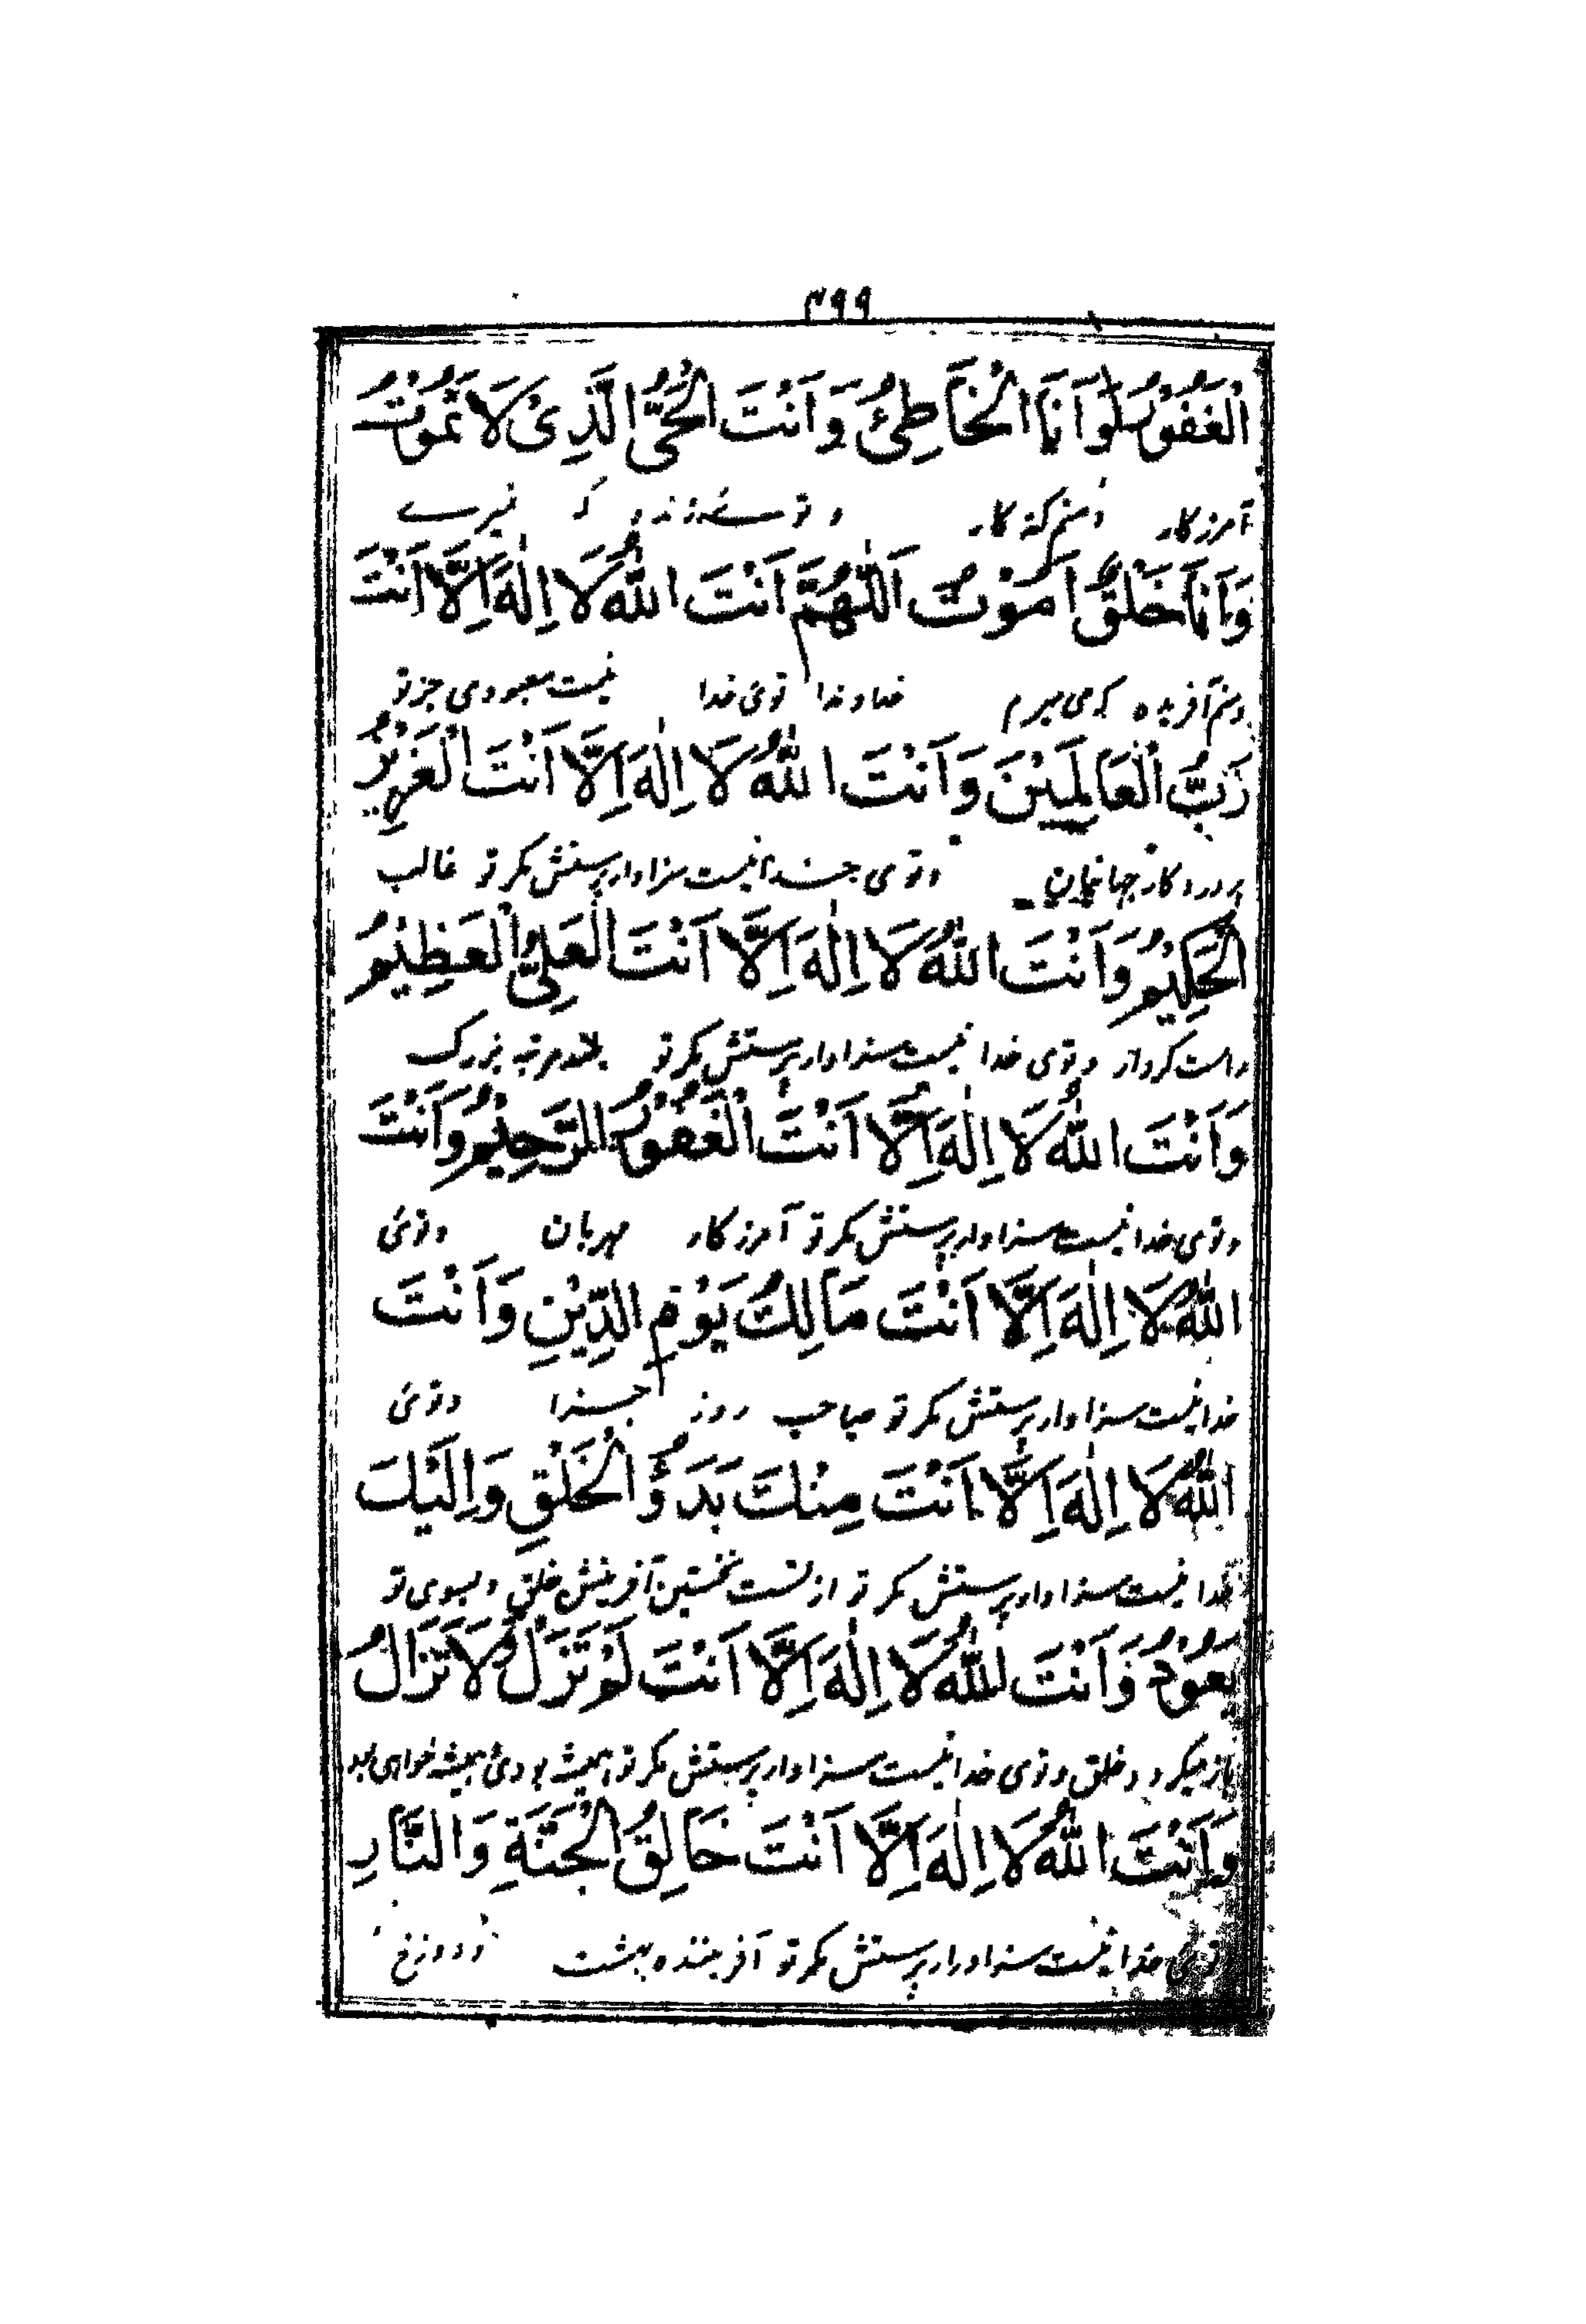 ۳۹۹
الْغَفُوْرُ وَاَنَا الْخَاطِئُ وَاَنْتَ الْحَيُّ الَّذِىْ لَا تَمُوْتُ
آمرزگار ومنم گنه گار و توئے زندہ کہ نمیرے
وَاَنَا خَلْقٌ اَمُوْتُ اَللّٰهُمَّ اَنْتَ اللّٰهُ لَا اِلٰهَ اِلَّا اَنْتَ
ومنم آفریده که می میرم خداوندا توئ خدا نیست معبودی جز تو
رَبُّ الْعَالَمِيْنَ وَاَنْتَ اللّٰهُ لَا اِلٰهَ اِلَّا اَنْتَ الْعَزِيْزُ
پروردگار جهانیان وتوی خدا نیست سزاوار پرستش مگر تو غالب
الْحَكِيْمُ وَاَنْتَ اللّٰهُ لَا اِلٰهَ اِلَّا اَنْتَ الْعَلِىُّ الْعَظِيْمُ
راست کردار وتوی خدا نیست سزاوار پرستش مگر تو بلند مرتبه بزرگ
وَاَنْتَ اللّٰهُ لَا اِلٰهَ اِلَّا اَنْتَ الْغَفُوْرُ الرَّحِيْمُ وَاَنْتَ
وتوی خدا نیست سزاوار پرستش مگر تو آمرزگار مهربان وتوئ
اللّٰهُ لَا اِلٰهَ اِلَّا اَنْتَ مَالِكُ يَوْمِ الدِّيْنِ وَاَنْتَ
خدا نیست سزاوار پرستش مگر تو صاحب روز جزا وتوئ
اللّٰهُ لَا اِلٰهَ اِلَّا اَنْتَ مِنْكَ بَدَؤُ الْخَلْقِ وَاِلَيْكَ
خدا نیست سزاوار پرستش مگر تو از تست نخستین آفرینش خلق وبسوی تو
يَعُوْدُ وَاَنْتَ اللّٰهُ لَا اِلٰهَ اِلَّا اَنْتَ لَمْ تَزَلْ وَلَا تَزَالُ
باز میگردد خلق وتوی خدا نیست سزاوار پرستش مگر تو همیشه بودئ همیشه خواهی بود
وَاَنْتَ اللّٰهُ لَا اِلٰهَ اِلَّا اَنْتَ خَالِقُ الْجَنَّةِ وَالنَّارِ
توئی خدا نیست سزاوار پرستش مگر تو آفریننده بهشت ودوزخ